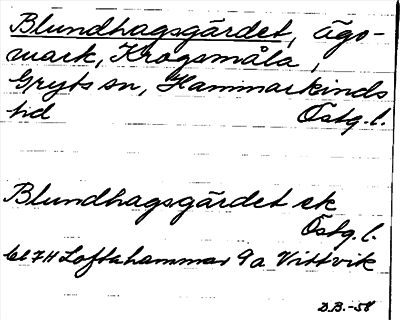 Blundhagsgärdet, ägo-
mark, Krogsmåla,
Gryts sn, Hammarkinds
hd Östg. l.
Blundhagsgärdet ek
Östg. l.
bl 7H Loftahammar 9a Vittvik
D.B. -58